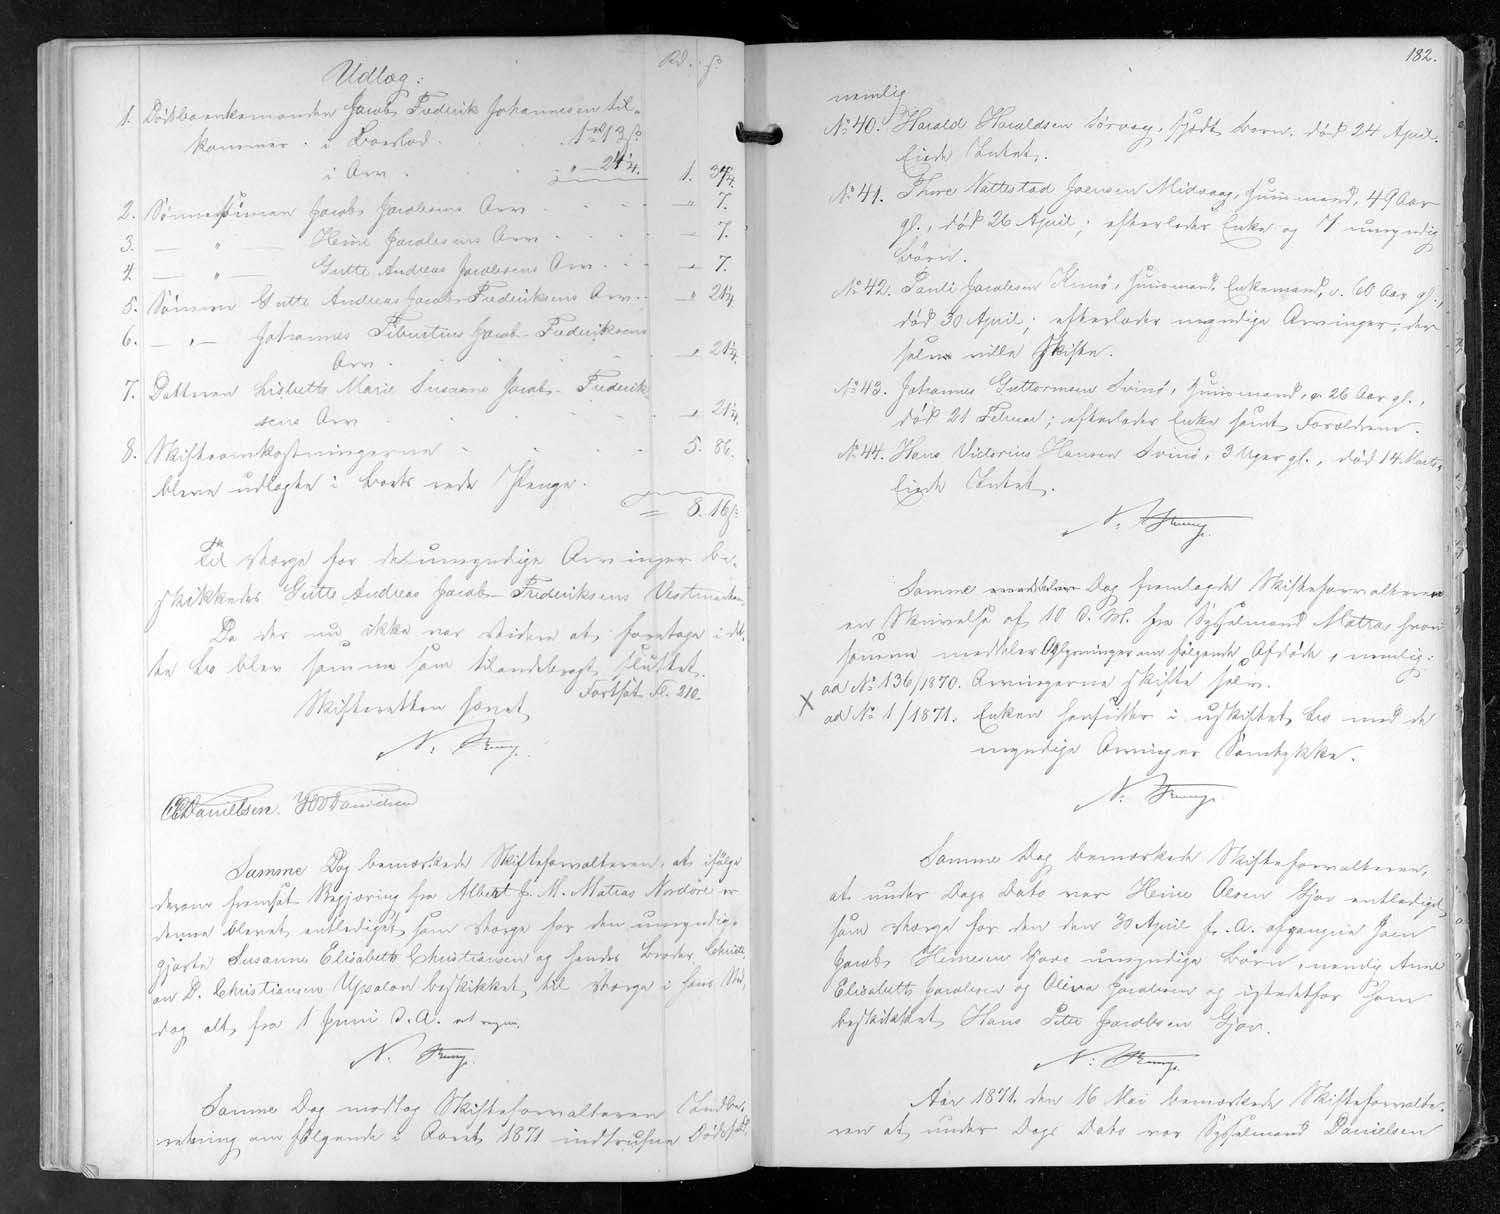 Udlæg: Rd. ß
1. Dødsboenkemanden Jacob Frederik Johannesen til-
kommer i Boeslod 1 rd 13 ß
i Arv " 24¼. 1. 37¼
2. Sønnesønnen Jacob Jacobsens Arv " 7.
3. — " — Heine Jacobsens Arv " 7.
4. — " — Gutte Andreas Jacobsens Arv " 7.
5. Sønnen Gutte Andreas Jacob-Frederiksens Arv " 21¼
6. — " — Johannes Tiburtius Jacob-Frederiksens
Arv " 21¼.
7. Datteren Lisbeth Marie Susanne Jacob-Frederik-
sens Arv " 21¼.
8. Skifteomkostningerne 5. 86.
bleve udlagte i Boets rede Penge.
= 8. 16 ß
Til Værge for de umyndige Arvinger be-
skikkedes Gutte Andreas Jacob-Frederiksens Vestmanhavn
Da der nu ikke var videre at foretage i det-
te Bo blev samme som tilendebragt sluttet.
Fortsat Fl. 210.
Skifteretten hævet
N.
Danielsen. Danielsen
Samme Dag bemærkede Skifteforvalteren, at ifølge
derom fremsat Begjæring fra Albert J. M. Matras Nordöre er
denne blevet entlediget som Værge for den umyndig-
gjorte Susanne Elisabeth Christiansen og hendes Broder Christi-
an D. Christiansen Upsalon beskikket til Værge i hans Sted,
dog alt fra 1 Juni d. A. at regne.
N.
Samme Dag modtog Skifteforvalteren Indbe-
retning om følgende i Aaret 1871 indtrufne Dødsfald,
182.
nemlig
No 40. Harald Haraldsen Sørvaag, spædt Barn, død 24 April.
Eiede Intet.
No 41. Thore Nattestad Joensen Midvaag, Huusmand, 49 Aar
gl., død 26 April; efterlader Enke og 7 umyndige
Børn.
No 42. Pauli Jacobsen Kunø, Huusmand, Enkemand, c. 60 Aar gl.,
død 30 April; efterlader myndige Arvinger, der
selv ville skifte.
No 43. Johannes Guttormsen Svinø, Huusmand, c. 26 Aar gl.,
død 21 Februar; efterlader Enke samt Forældrene.
No 44. Hans Victorius Hansen Svinø, 3 Uger gl., død 14 Marts.
Eiede Intet.
N.
Samme Dag fremlagde Skifteforvalteren
en Skrivelse af 10 d. M. fra Sysselmand Matras hvori
samme meddeler Oplysninger om følgende Afdøde, nemlig:
ad No 136/1870. Arvingerne skifte selv.
X ad No 1/1871. Enken hensidder i uskiftet Bo med de
myndige Arvinger Samtykke.
N.
Samme Dag bemærkede Skifteforvalteren,
at under Dags Dato var Heine Olsen Gjov entlediget
som Værge for den den 30 April f. A. afgangne Joen
Jacob Heinesen Gjovs umyndige Børn, nemlig Anne
Elisabeth Jacobsen og Oliva Jacobsen og istedetfor ham
beskikket Hans Peter Jacobsen Gjov.
N.
Aar 1871. den 16 Mai bemærkede Skifteforvalte-
ren at under Dags Dato var Sysselmand Danielsen